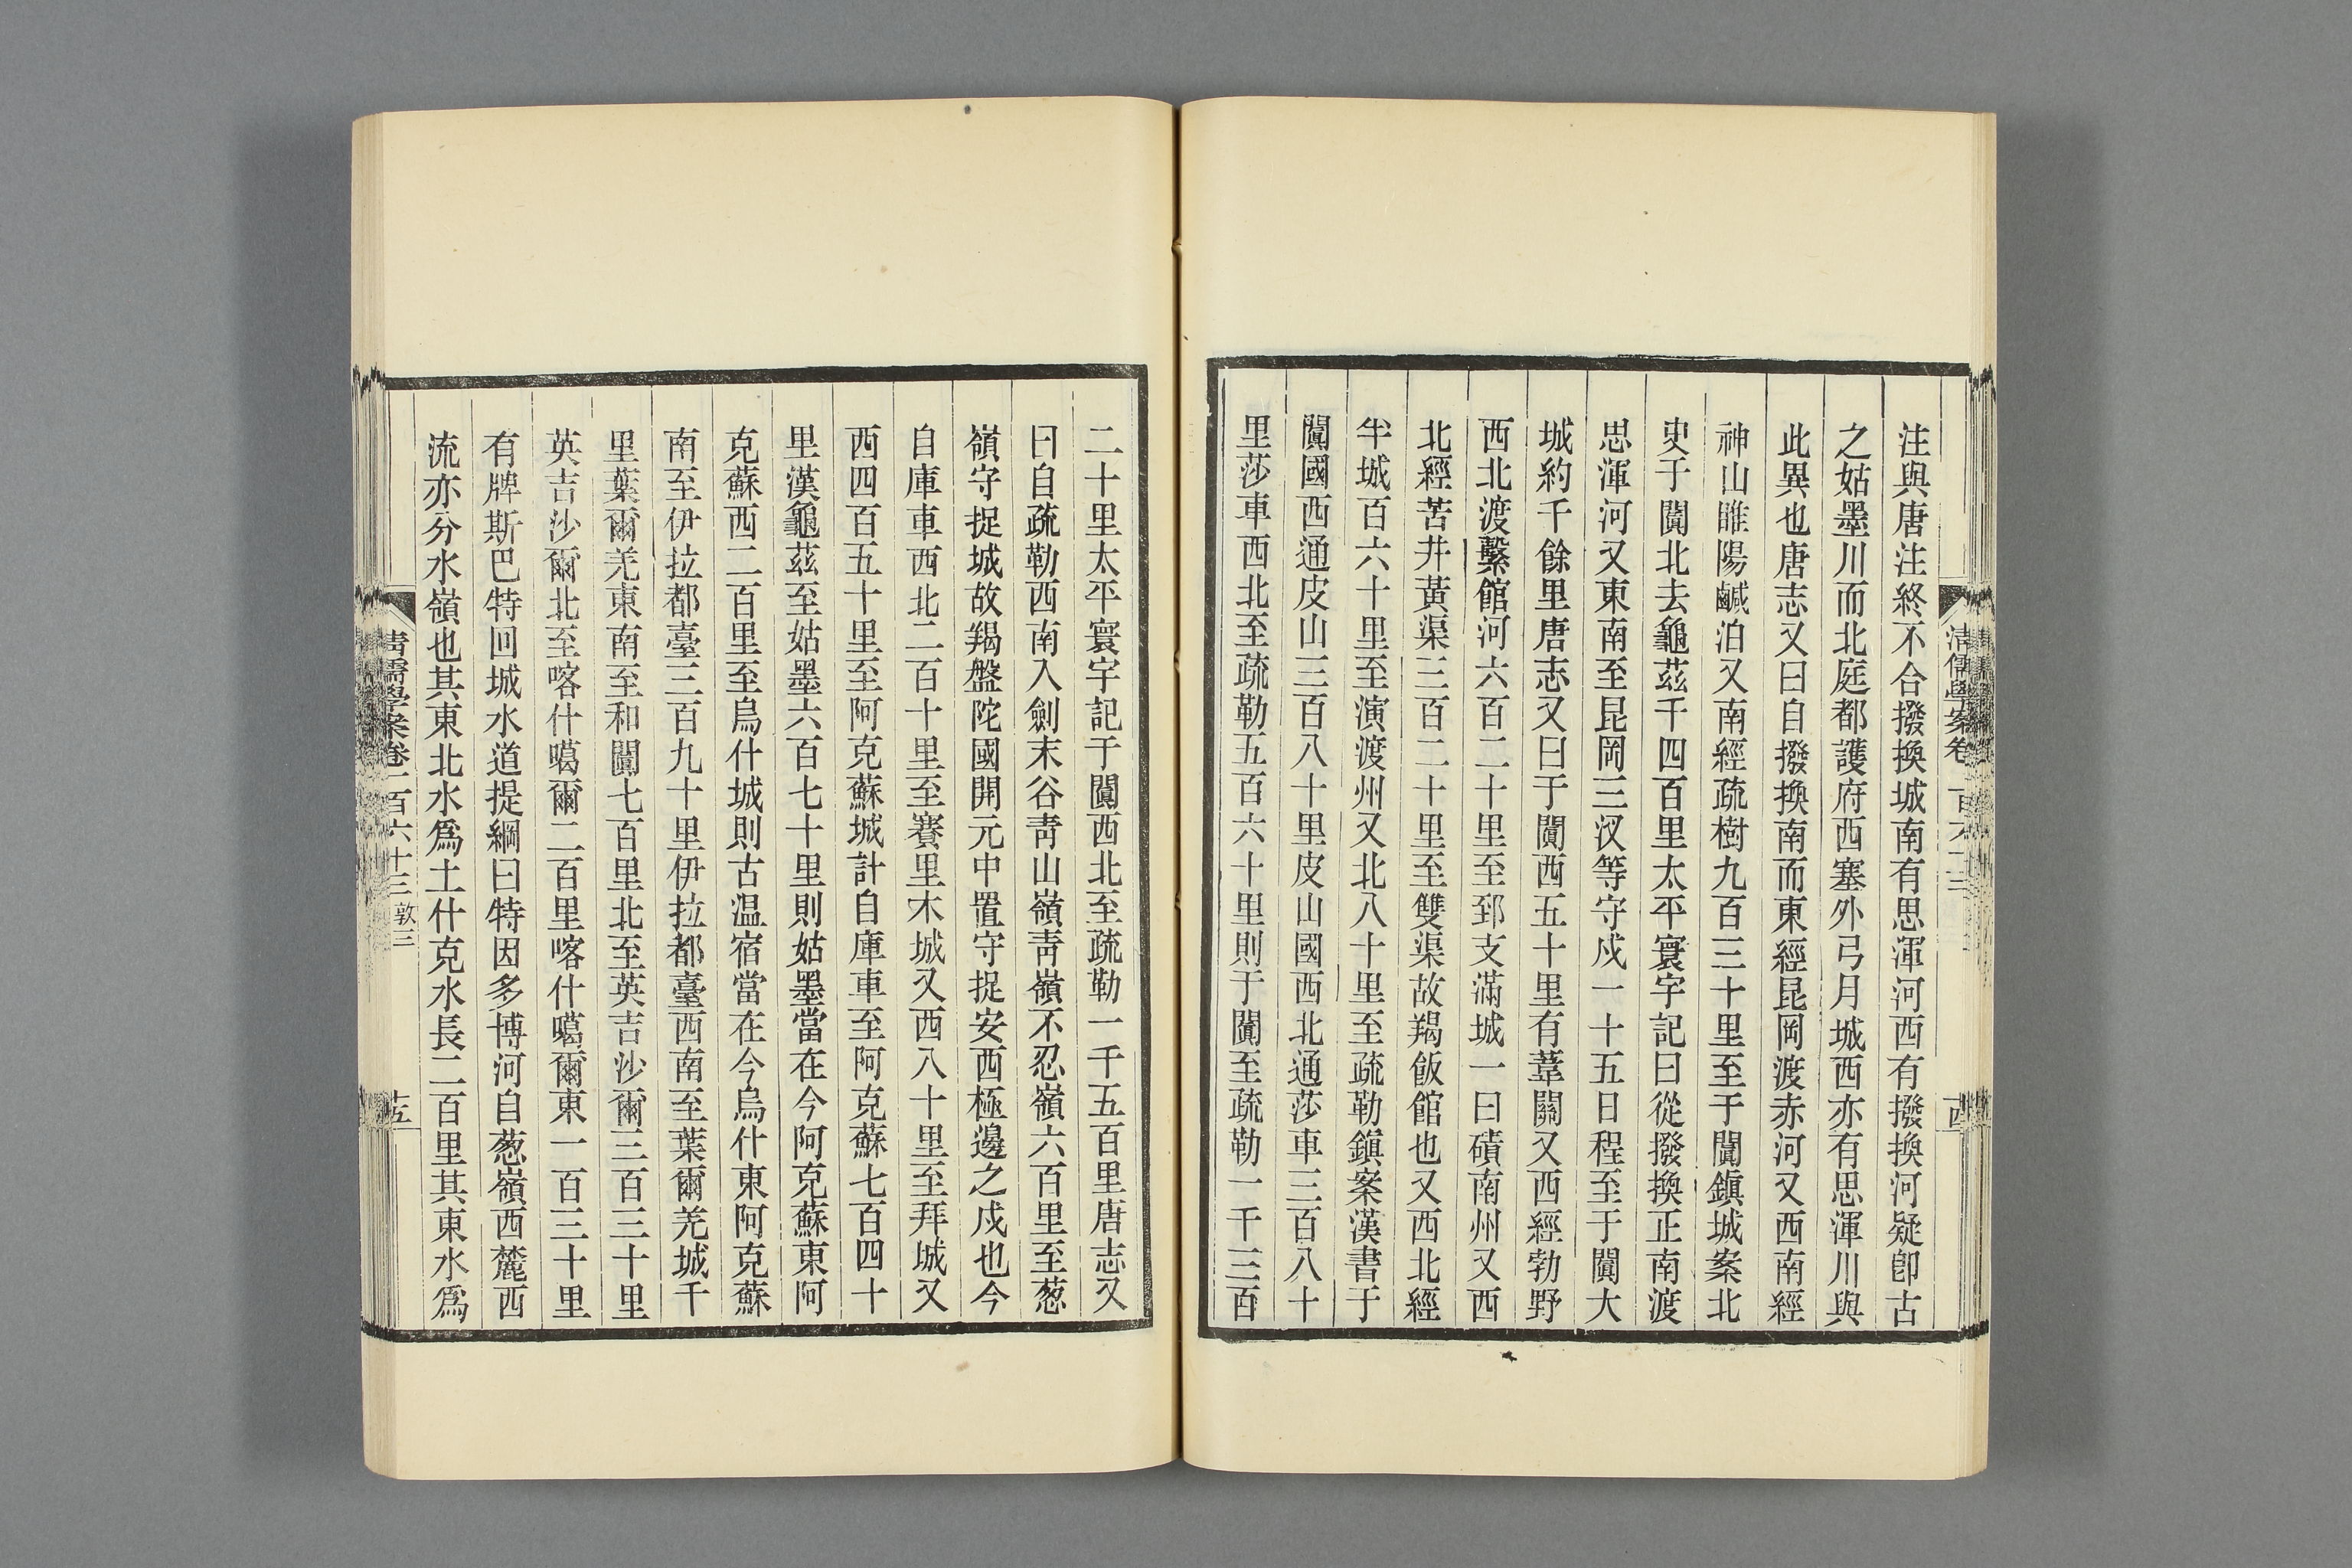 注與唐注終不合撥換城南有思渾河西有撥換河疑卽古
之姑墨川而北庭都護府西塞外弓月城西亦有思渾川與
此異也唐志又曰自撥換南而東經昆岡渡赤河又西南經
神山睢陽鹹泊又南經疏樹九百三十里至于闐鎭城案北
史于闐北去龜茲千四百里太平寰宇記曰從撥換正南渡
思渾河又東南至昆岡三汊等守戍一十五日程至于闐大
城約千餘里唐志又曰于闐西五十里有葦關又西經勃野
西北渡繫館河六百二十里至郅支滿城一曰磧南州又西
北經苦井黃渠三百二十里至雙渠故羯飯館也又西北經
半城百六十里至演渡州又北八十里至疏勒鎭案漢書于
闐國西通皮山三百八十里皮山國西北通莎車三百八十
里莎車西北至疏勒五百六十里則于闐至疏勒一千三百
二十里太平寰宇記于闐西北至疏勒一千五百里唐志又
曰自疏勒西南入劍末谷靑山嶺靑嶺不忍嶺六百里至葱
嶺守捉城故羯盤陀國開元中置守捉安西極邊之戍也今
自庫車西北二百十里至賽里木城又西八十里至拜城又
西四百五十里至阿克蘇城計自庫車至阿克蘇七百四十
里漢龜茲至姑墨六百七十里則姑墨當在今阿克蘇東阿
克蘇西二百里至烏什城則古温宿當在今烏什東阿克蘇
南至伊拉都臺三百九十里伊拉都臺西南至葉爾羌城千
里葉爾羌東南至和闐七百里北至英吉沙爾三百三十里
英吉沙爾北至喀什噶爾二百里喀什噶爾東一百三十里
有牌斯巴特回城水道提綱曰特因多博河自葱嶺西麓西
流亦分水嶺也其東北水爲土什克水長二百里其東水爲
清儒學案卷一百六十三 敦三
十五